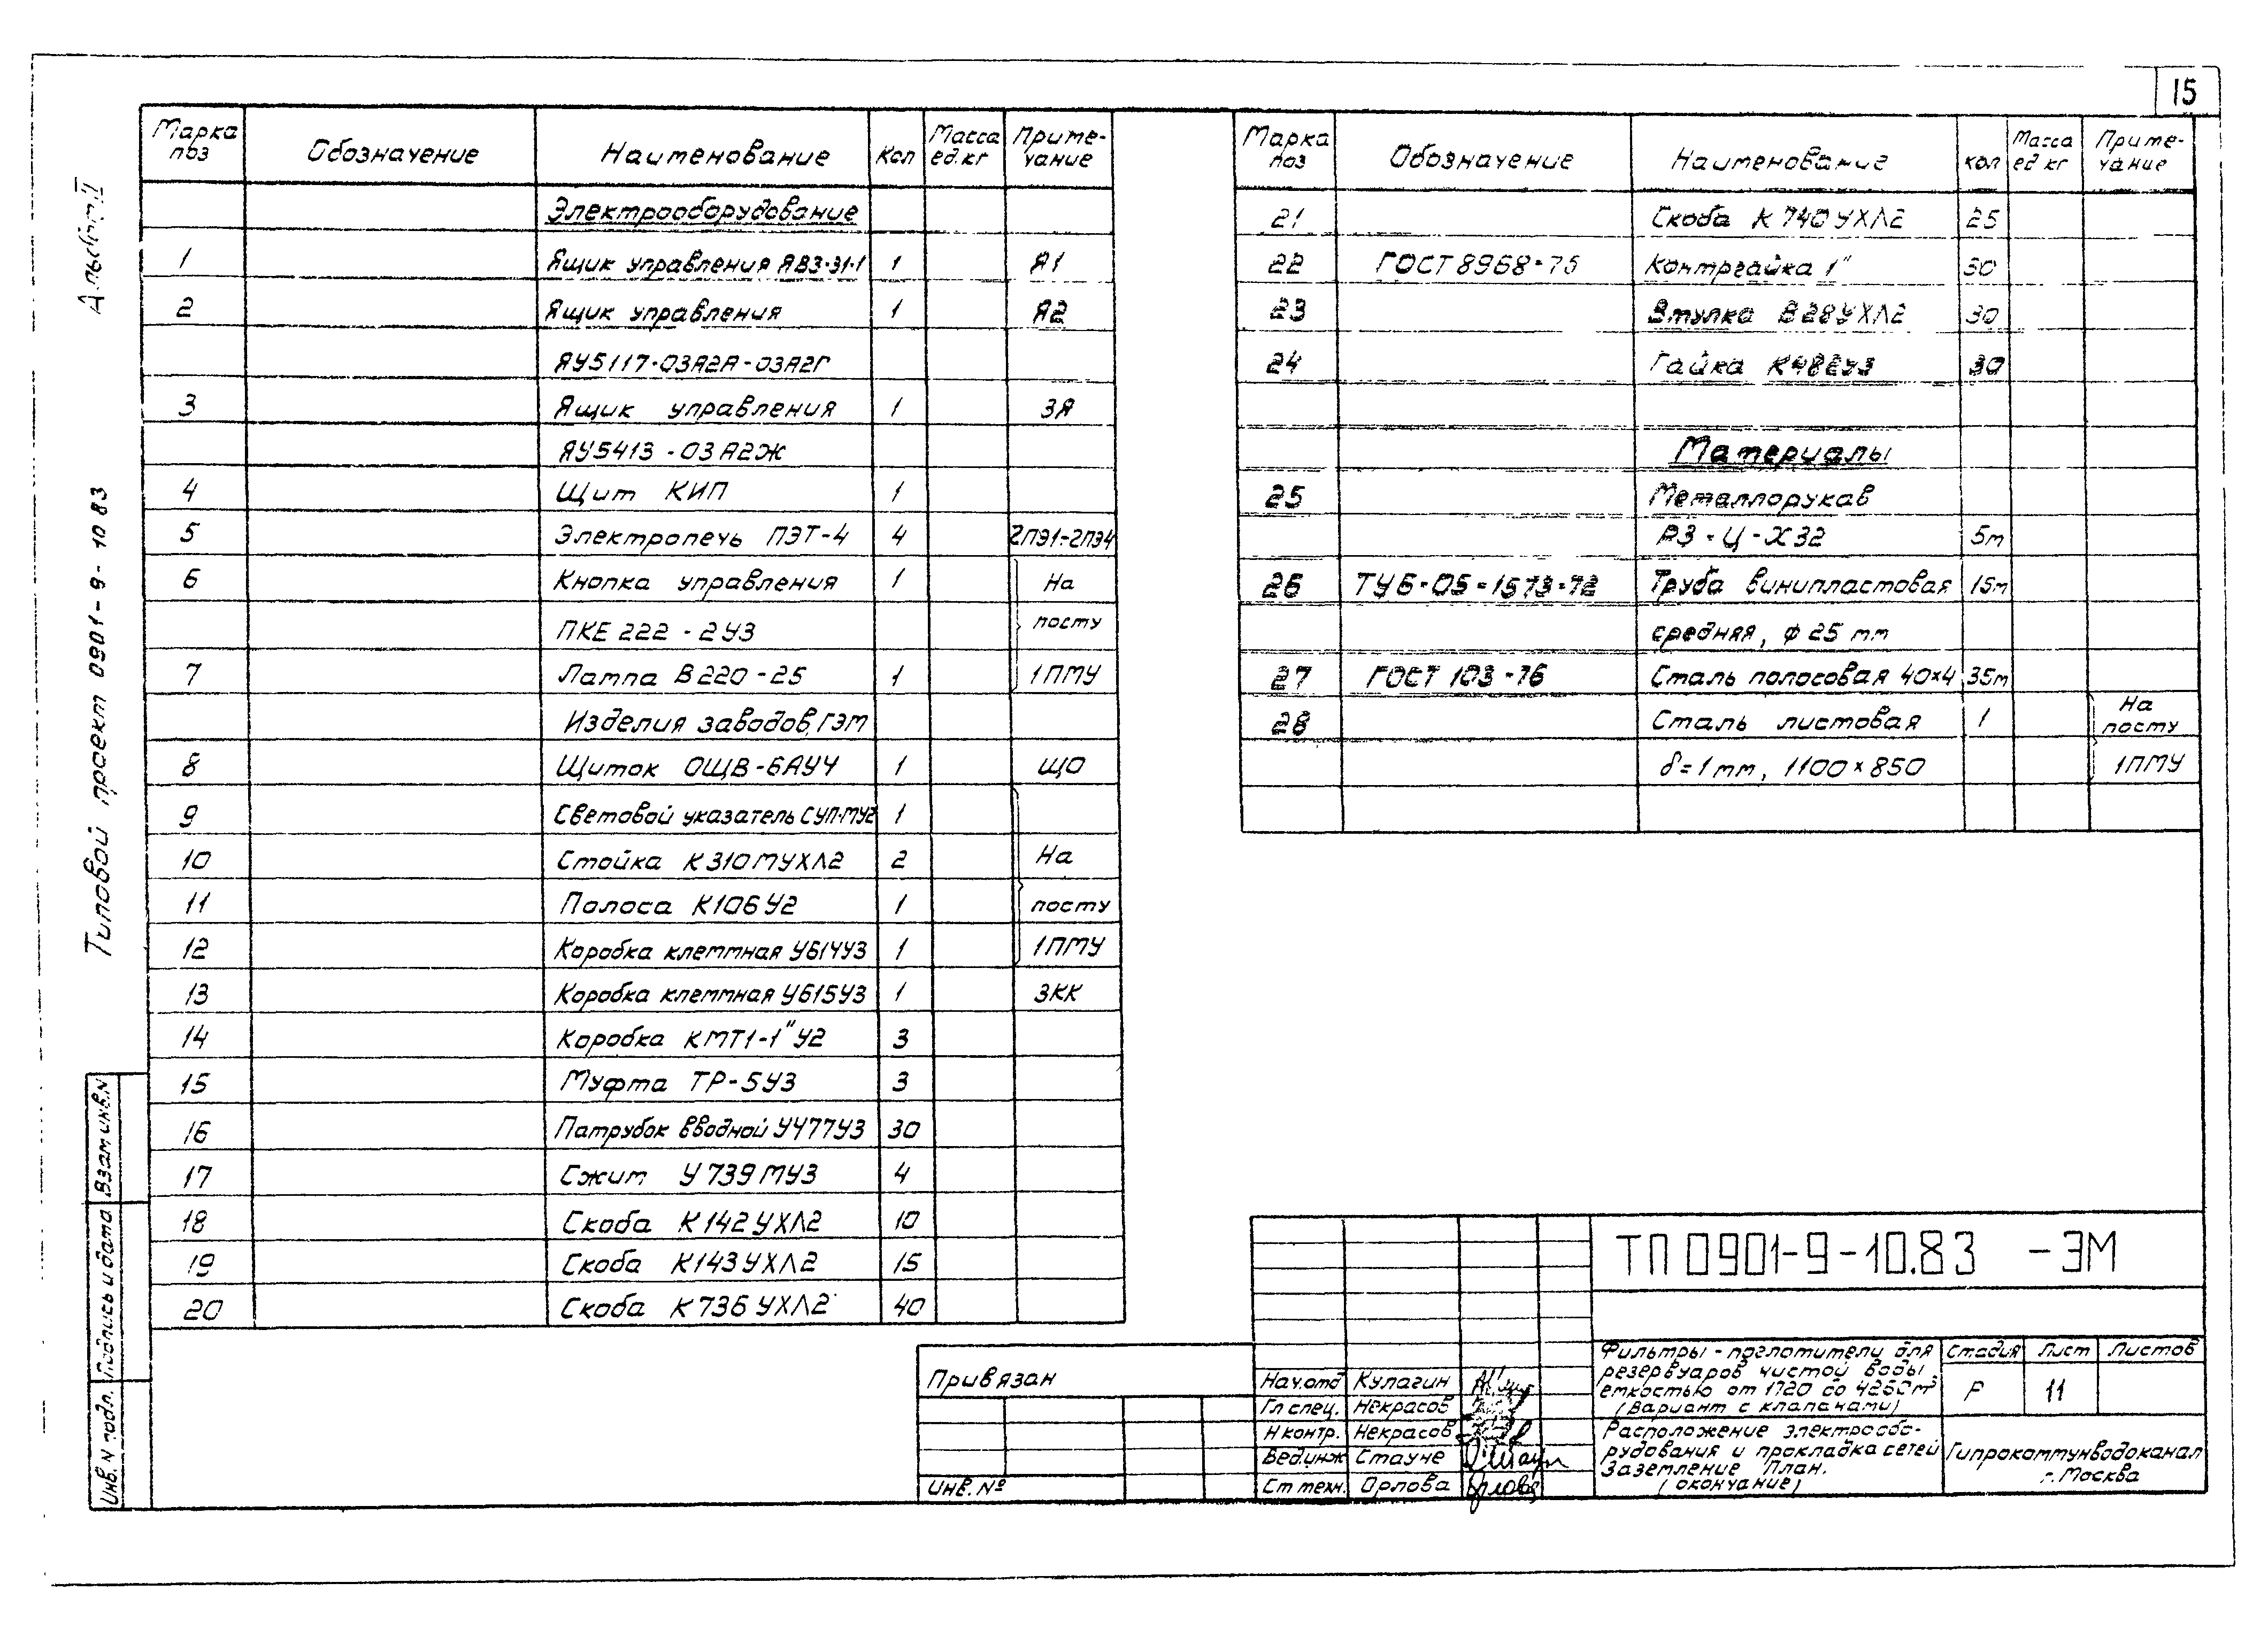 15
Альбом II
Типовой проект 0901-9-10 83
Марка поз | Обозначение | Наименование | Кол | Масса ед.кг | Приме-чание
Электрооборудование
1 | Ящик управления ЯВЗ-31-1 | 1 | Я1
2 | Ящик управления | 1 | Я2
ЯУ5117-03А2А-03А2Г
3 | Ящик управления | 1 | 3Я
ЯУ5413-03А2Ж
4 | Щит КИП | 1
5 | Электропечь ПЭТ-4 | 4 | 2ПЭ1-2ПЭ4
6 | Кнопка управления | 1 | На
ПКЕ 222-2У3 | посту
7 | Лампа В220-25 | 1 | 1ПМУ
Изделия заводов ГЭМ
8 | Щиток ОЩВ-6АУ4 | 1 | ЩО
9 | Световой указатель СУП-МУ2 | 1
10 | Стойка К310МУХЛ2 | 2 | На
11 | Полоса К106У2 | 1 | посту
12 | Коробка клеммная У614У3 | 1 | 1ПМУ
13 | Коробка клеммная У615У3 | 1 | 3КК
14 | Коробка КМТ1-1"У2 | 3
15 | Муфта ТР-5У3 | 3
16 | Патрубок вводной У477У3 | 30
17 | Сжим У739МУ3 | 4
18 | Скоба К142УХЛ2 | 10
19 | Скоба К143УХЛ2 | 15
20 | Скоба К736УХЛ2 | 40
Марка поз | Обозначение | Наименование | кол | Масса ед кг | Приме-чание
21 | Скоба К740УХЛ2 | 25
22 | ГОСТ 8968-75 | Контргайка 1" | 30
23 | Втулка В28УХЛ2 | 30
24 | Гайка К482У3 | 30
Материалы
25 | Металлорукав
РЗ-Ц-Х32 | 5м
26 | ТУ6-05-1573-72 | Труба винипластовая | 15м
средняя, ф 25 мм
27 | ГОСТ 103-76 | Сталь полосовая 40×4 | 35м
28 | Сталь листовая | 1 | На посту
δ=1мм, 1100×850 | 1ПМУ
Взам инв.N
Подпись и дата
Инв. N подл.
Привязан
Инв. №
Нач.отд Кулагин
Гл спец. Некрасов
Н контр. Некрасов
Вед.инж Стауне
Ст техн. Орлова
ТП 0901-9-10.83 -ЭМ
Фильтры-поглотители для
резервуаров чистой воды
емкостью от 1720 до 4260м³
(Вариант с клапанами)
Стадия | Лист | Листов
Р | 11
Расположение электрообо-
рудования и прокладка сетей
Заземление План.
(окончание)
Гипрокоммунводоканал
г. Москва